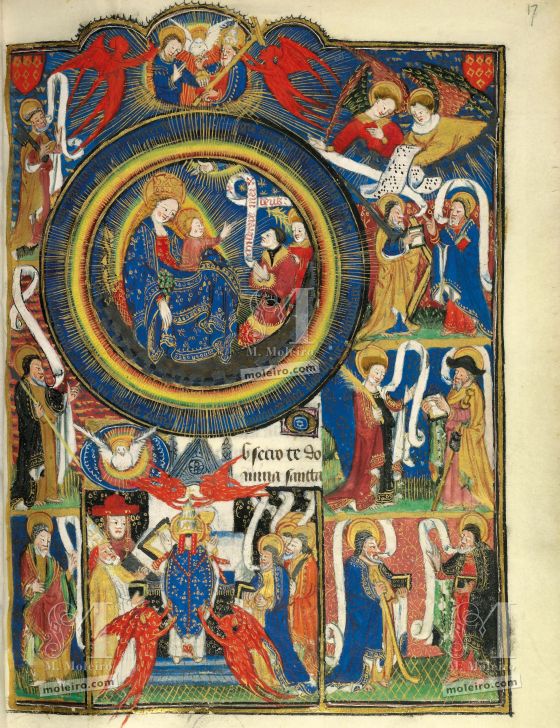 17
M. Moleiro
moleiro.com
bsecro te do
mina sancta
M. Moleiro
moleiro.com
M. Moleiro
moleiro.com